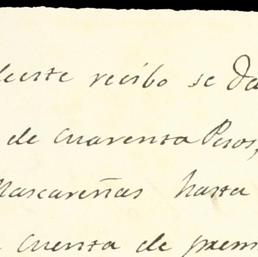 deeste recibo se Da
de cuarenta Pesos,
Mascareñas hasta
cuenta de prem